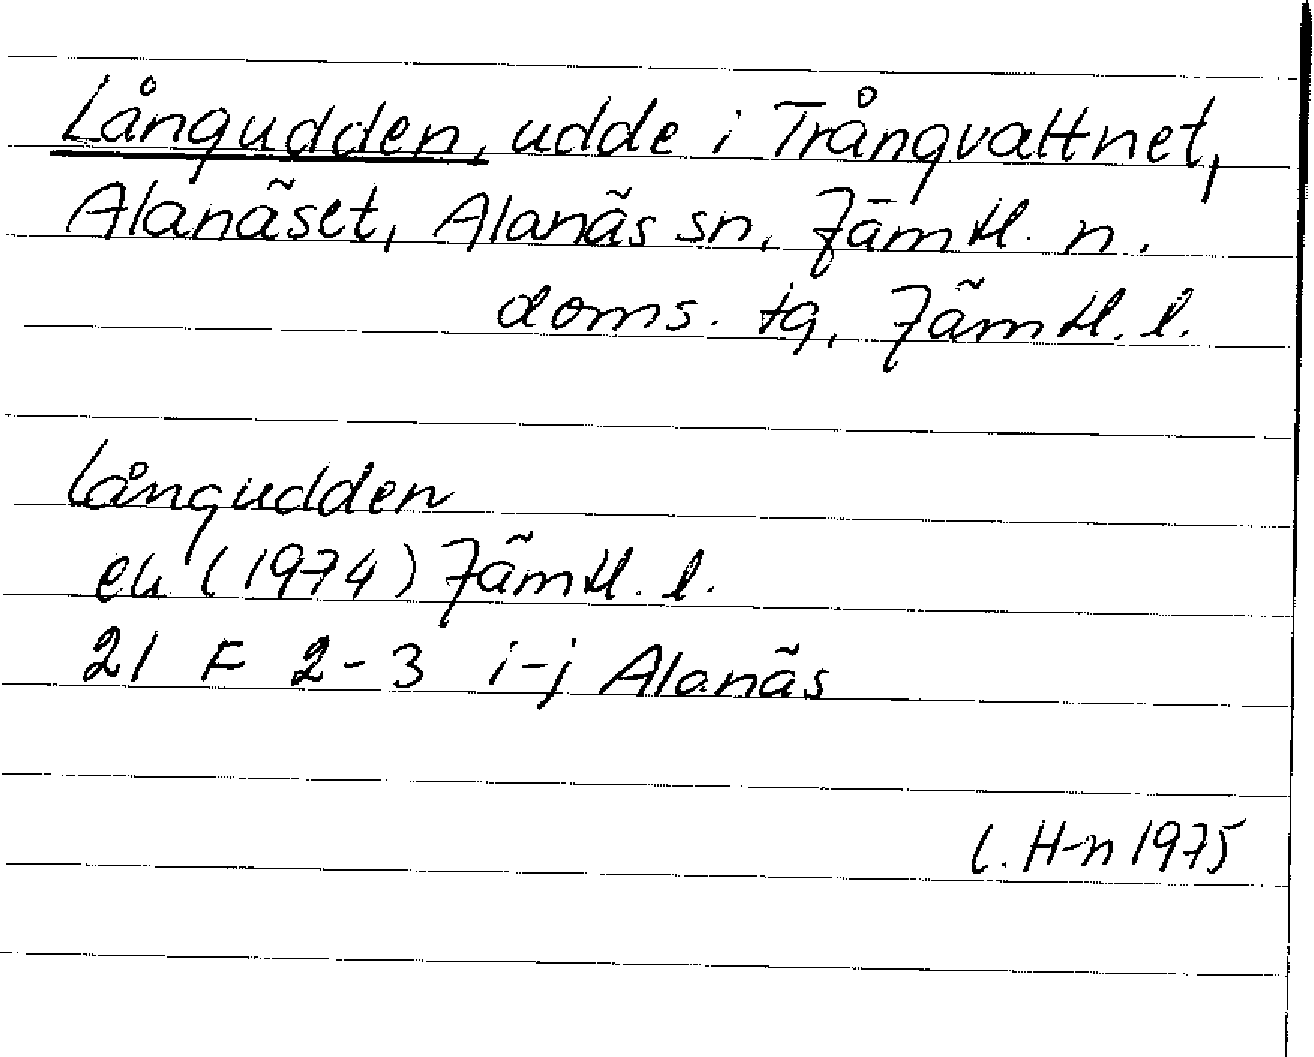 Långudden, udde i Trångvattnet,
Alanäset, Alanäs sn, Jämtl. n.
doms. tg, Jämtl. l.
Långudden
ek (1974) Jämtl. l.
21 F 2-3 i-j Alanäs
L. H-n 1975